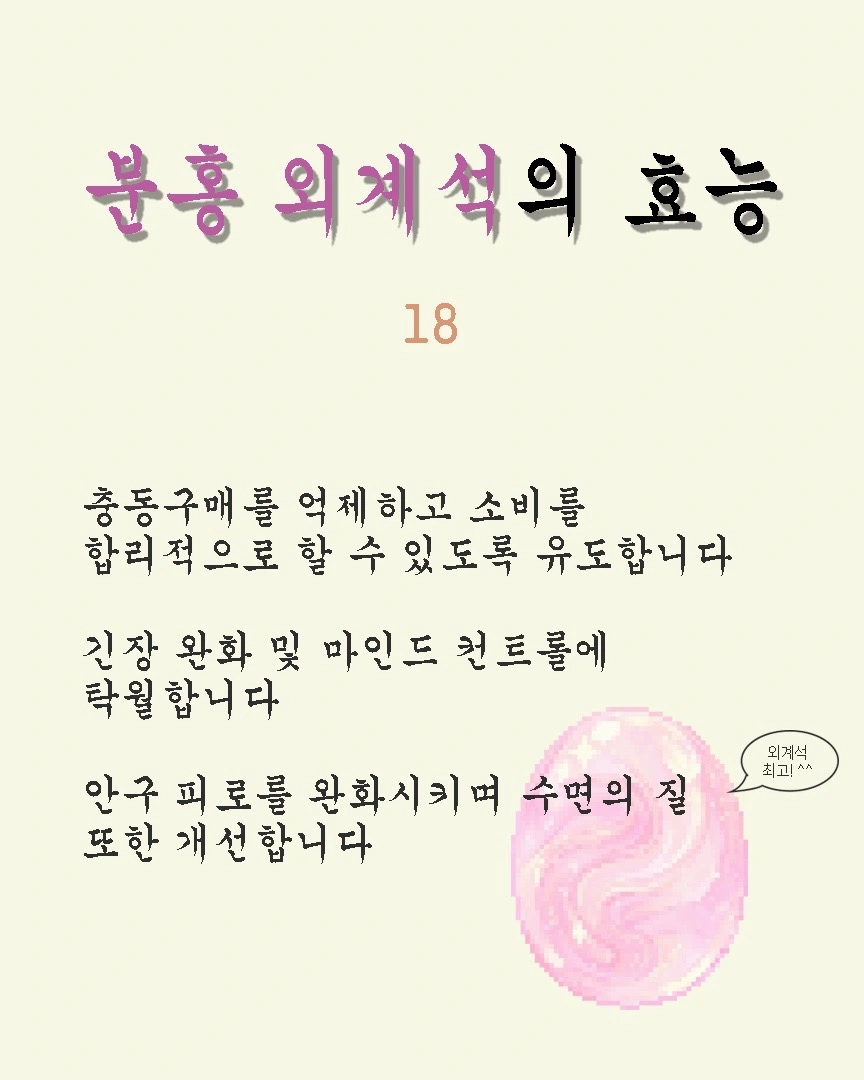 분홍 외계석의 효능
18
충동구매를 억제하고 소비를
합리적으로 할 수 있도록 유도합니다
긴장 완화 및 마인드 컨트롤에
탁월합니다
안구 피로를 완화시키며 수면의 질
또한 개선합니다
외계석
최고! ^^